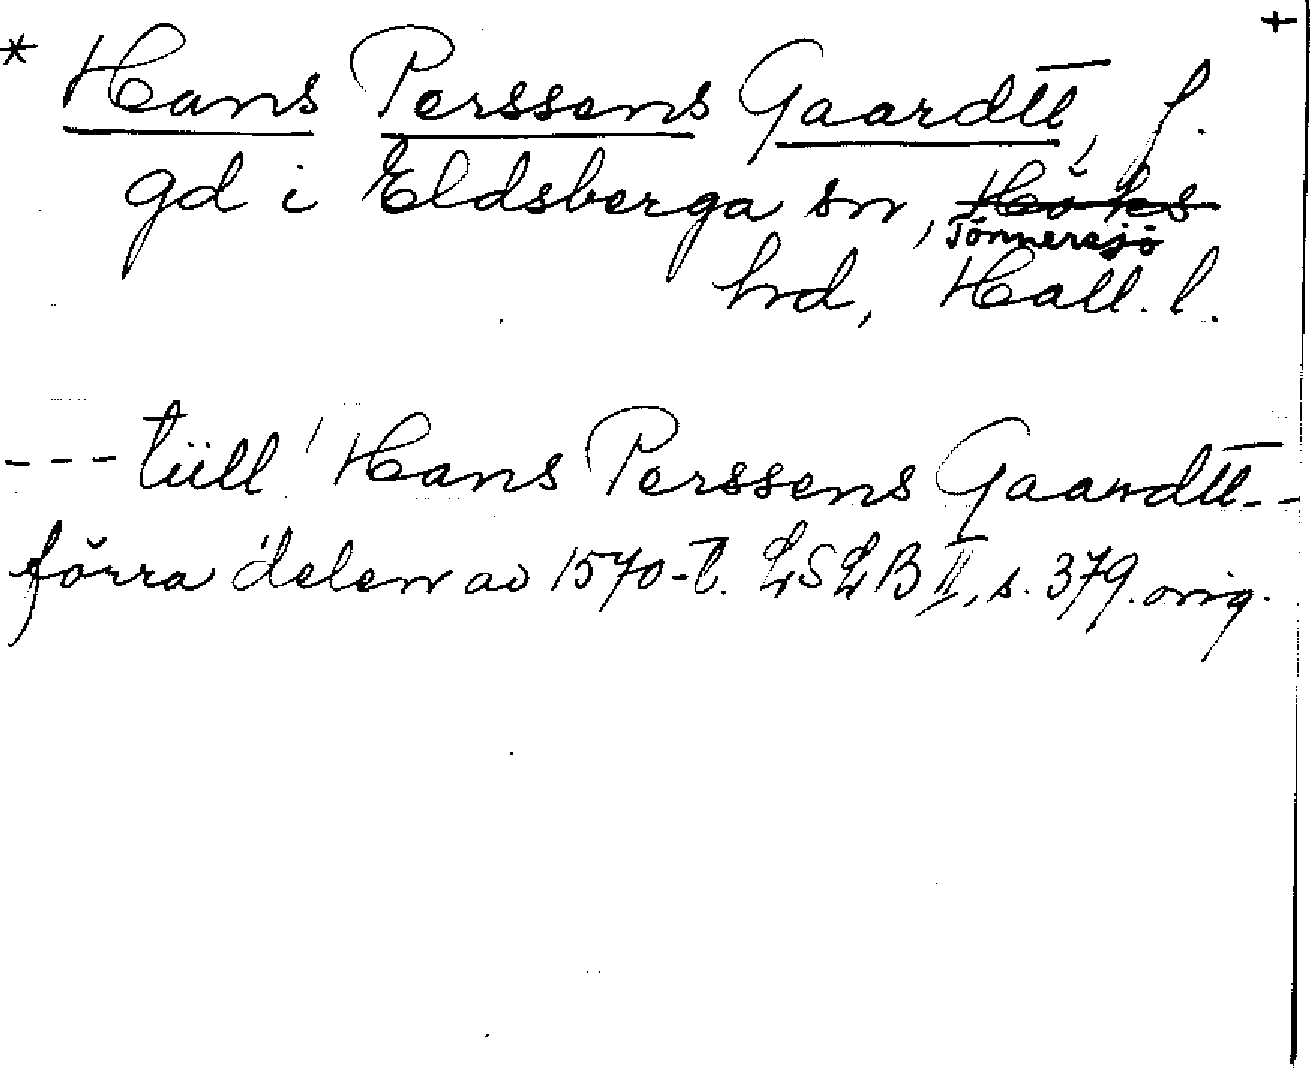 * Hans Perssens Gaardtt, f. +
gd i Eldsberga sn, ~~Höks~~
Tönnersjö
hrd, Hall. l.
--- tüll Hans Perssens Gaardtt--
förra delen av 1570-t. LSLB II, s. 379. orig.